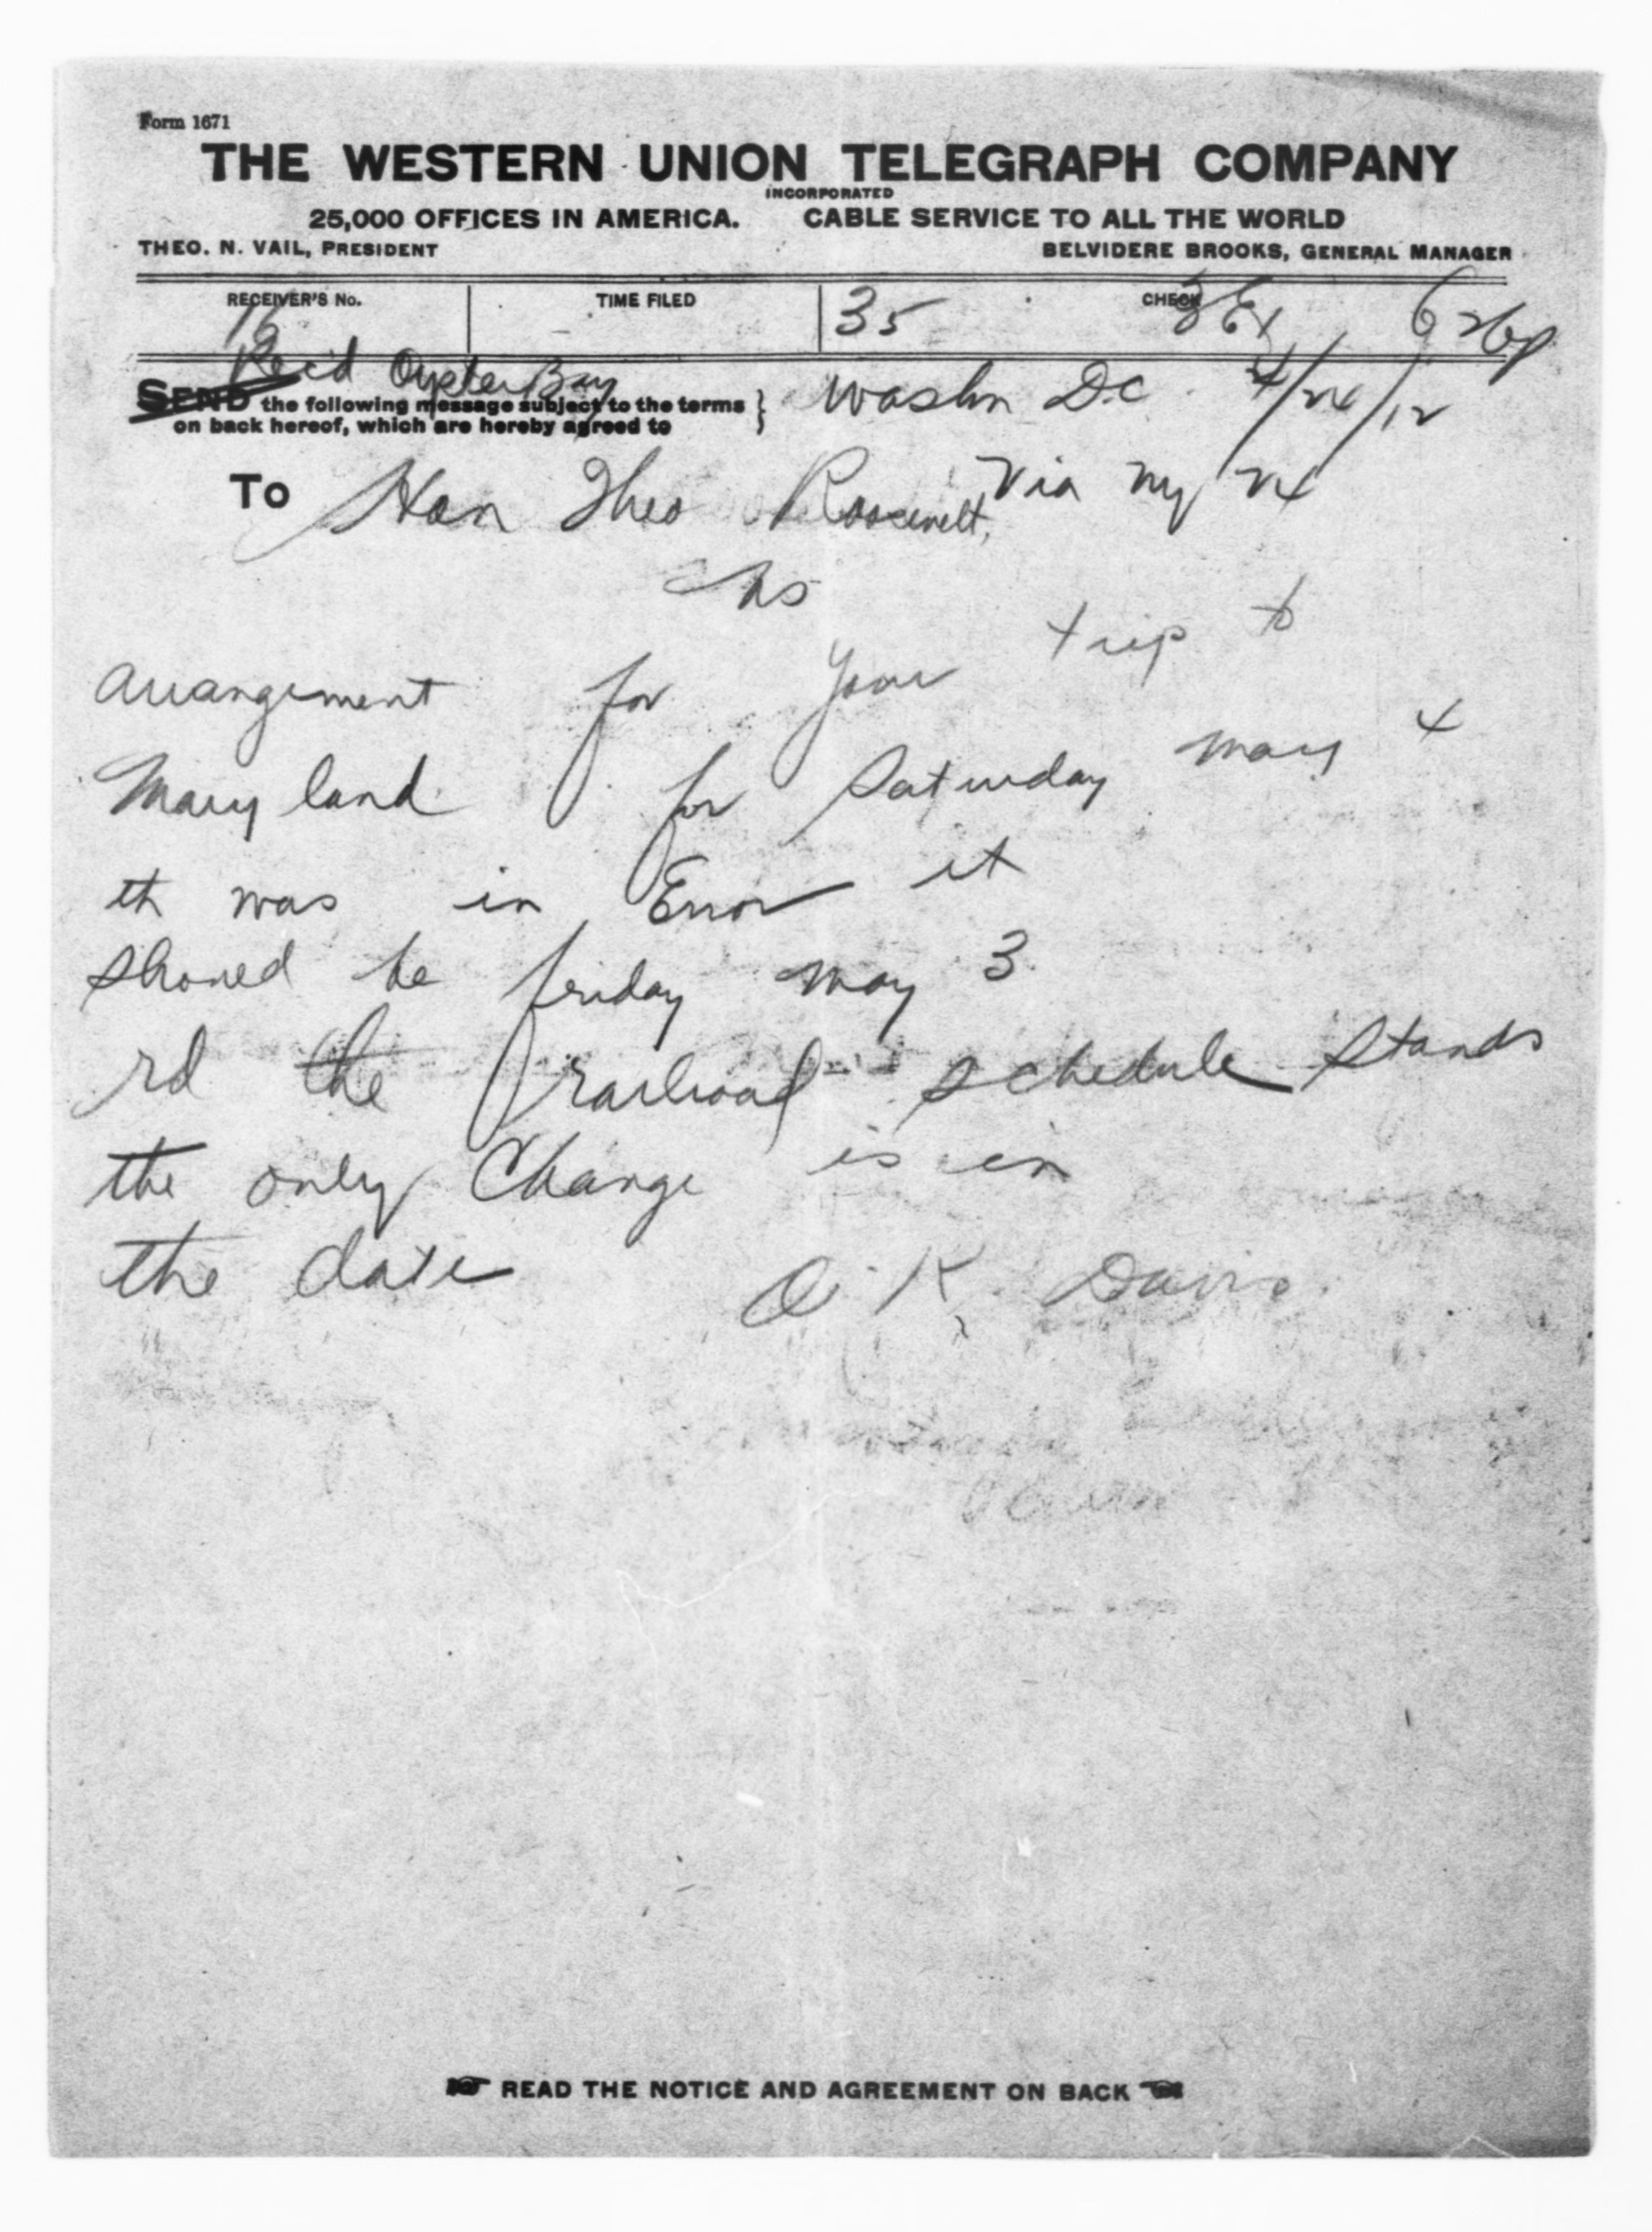 Form 1671
THE WESTERN UNION TELEGRAPH COMPANY
INCORPORATED
25,000 OFFICES IN AMERICA. CABLE SERVICE TO ALL THE WORLD
THEO. N. VAIL, PRESIDENT BELVIDERE BROOKS, GENERAL MANAGER
RECEIVER'S No. TIME FILED CHECK
16 35
Rec'd Oyster Bay
SEND the following message subject to the terms
on back hereof, which are hereby agreed to
Washn D.C. 4/24/12
Via ny
To Hon Theo Roosevelt,
arrangement for your trip to
Mary land for Saturday may 4
th was in Error it
shoued be friday may 3
rd the railroad schedule stands
the only Change is in
the date O. K. Davis
READ THE NOTICE AND AGREEMENT ON BACK